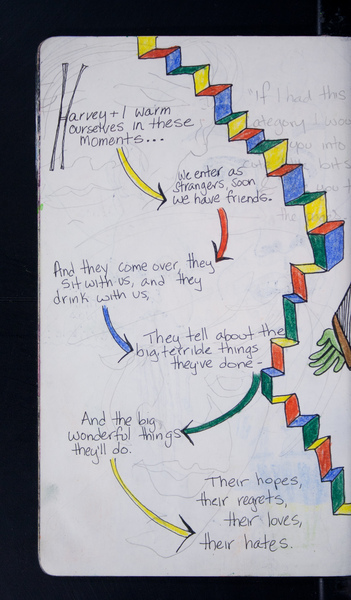 Harvey + I warm
ourselves in these
moments...
We enter as
strangers, soon
we have friends.
And they come over, they
sit with us, and they
drink with us,
They tell about the
big terrible things
they've done -
And the big
wonderful things
they'll do.
Their hopes,
their regrets,
their loves,
their hates.
"If I had this
category I
you into